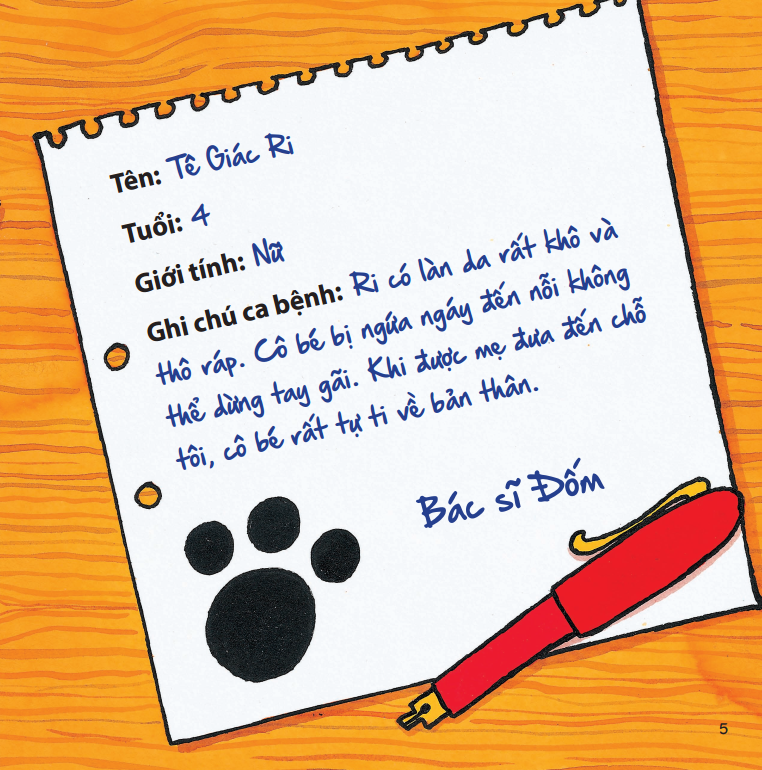 Tên: Tê Giác Ri
Tuổi: 4
Giới tính: Nữ
Ghi chú ca bệnh: Ri có làn da rất khô và
thô ráp. Cô bé bị ngứa ngáy đến nỗi không
thể dừng tay gãi. Khi được mẹ đưa đến chỗ
tôi, cô bé rất tự ti về bản thân.
Bác sĩ Đốm
5